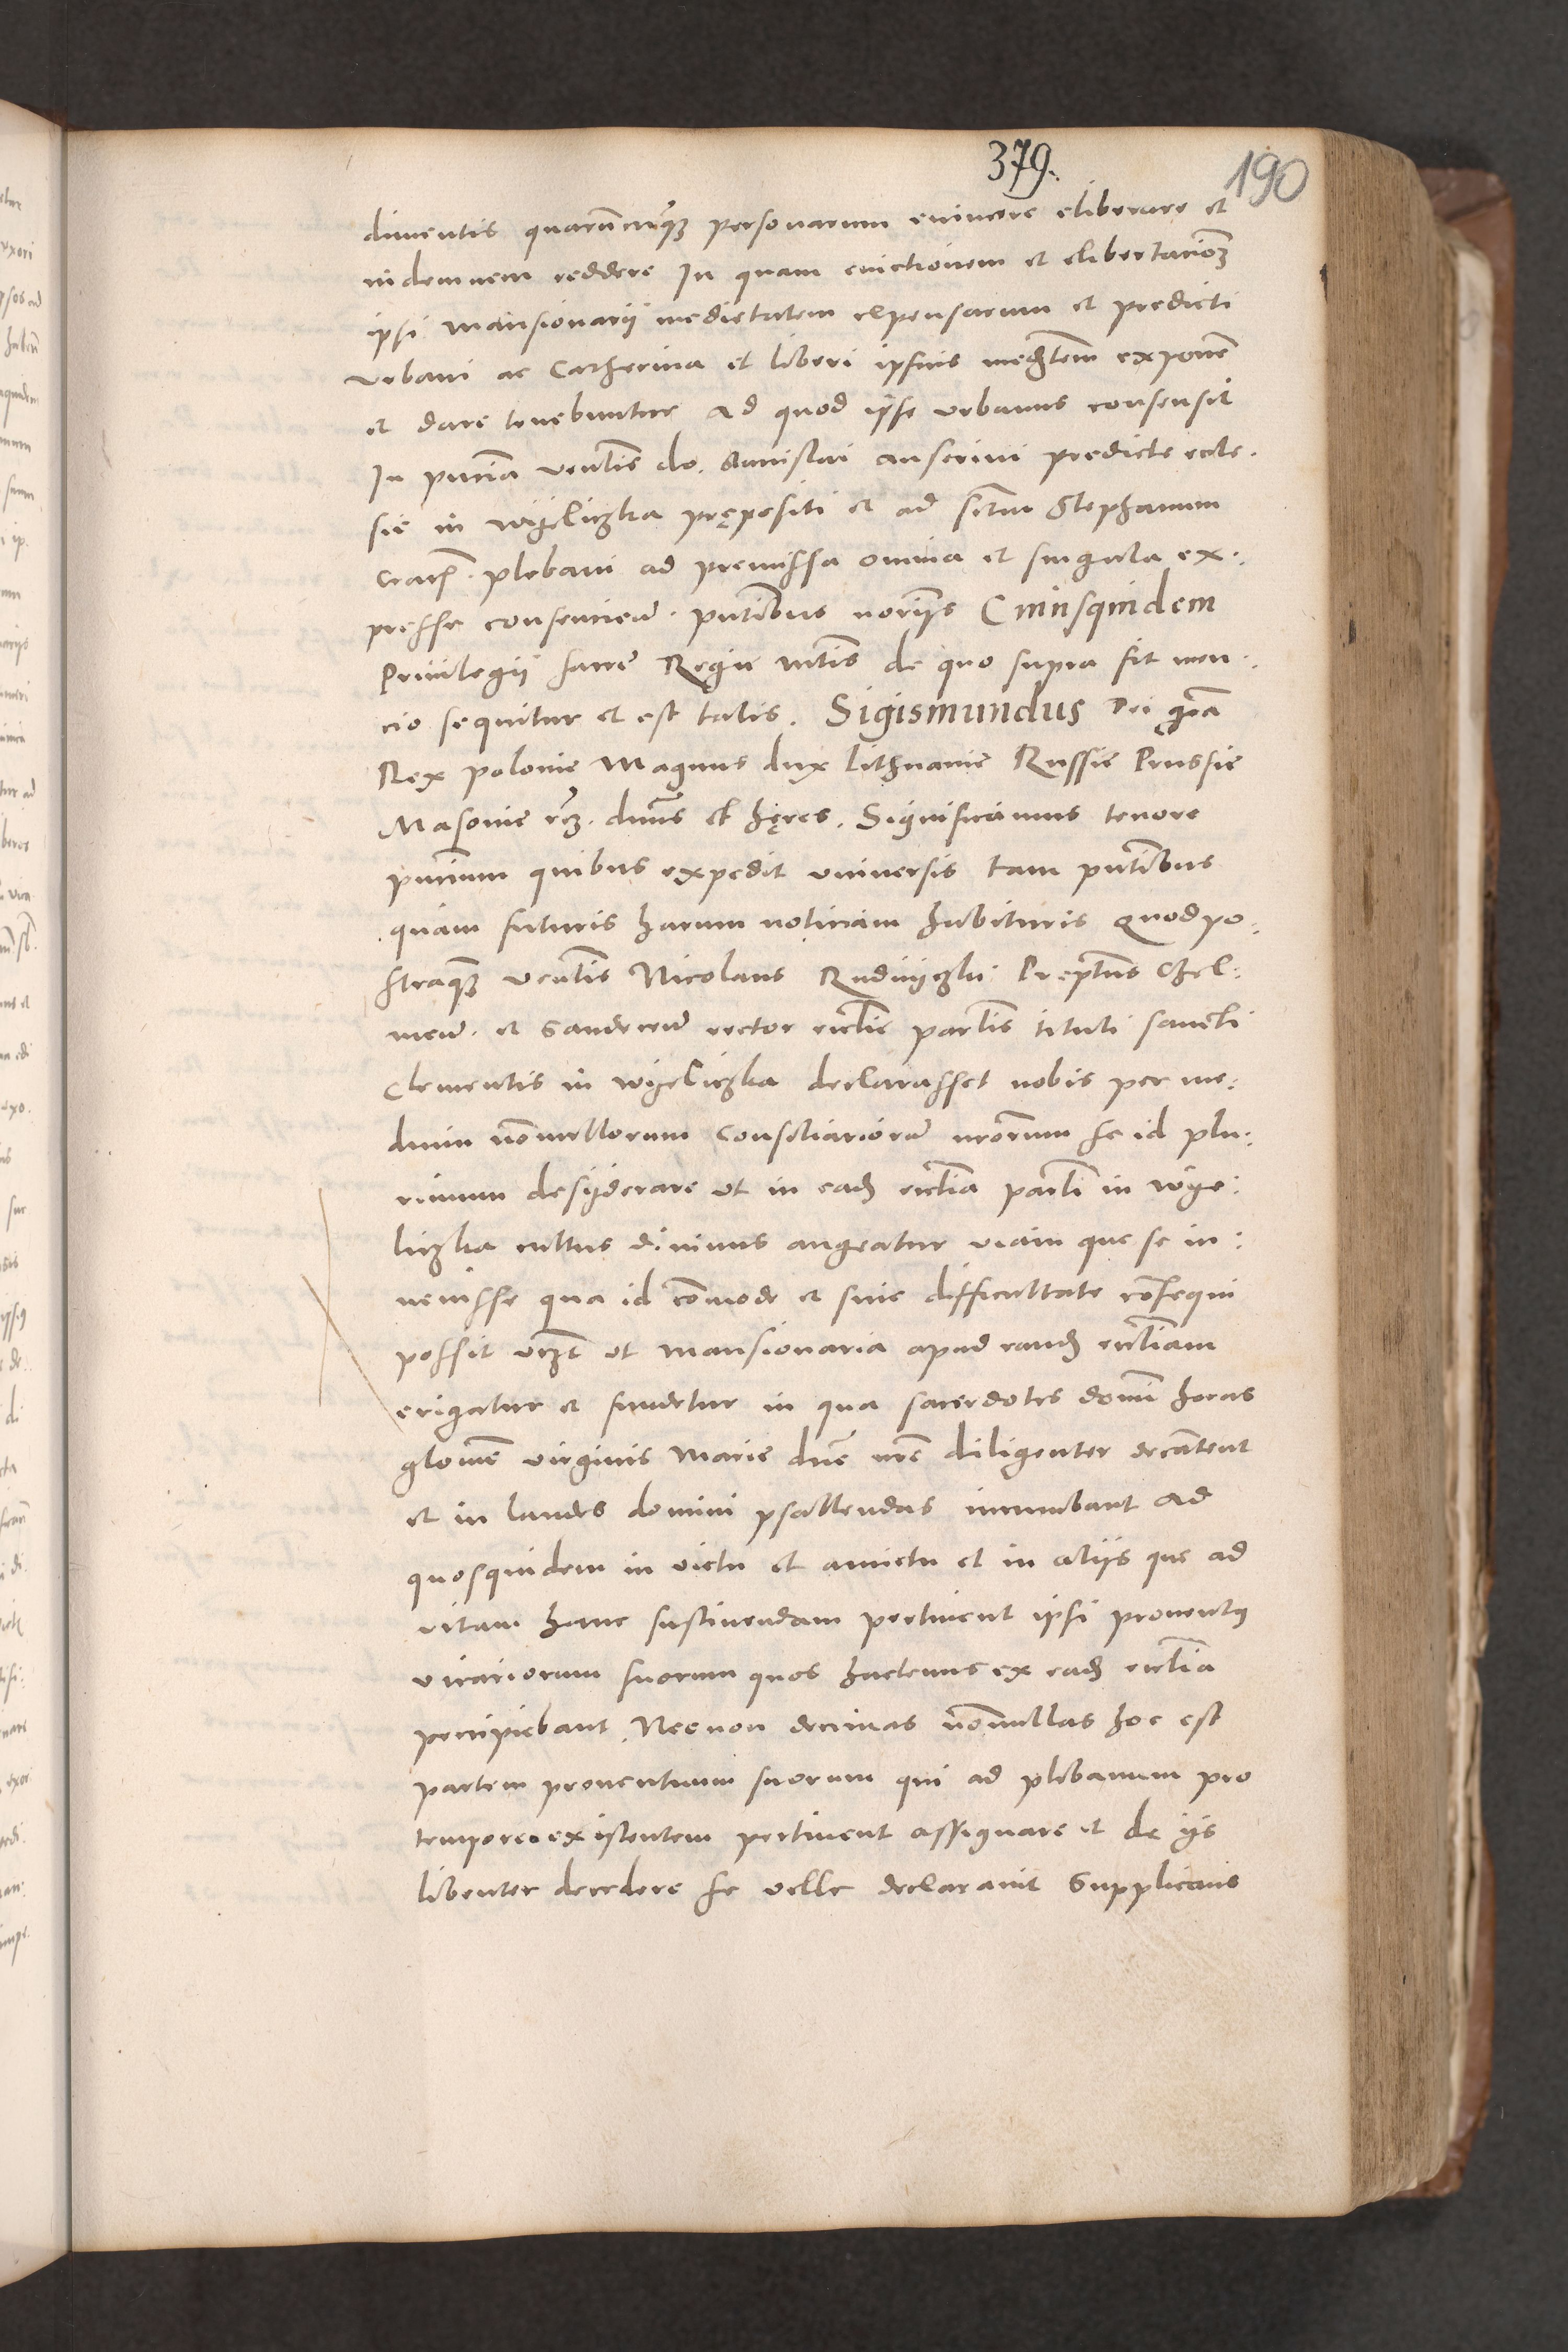 379.
190
dimentis quarūcūq₃ personarum evincere eliberare et
indemnem reddere In quam evictionem et elibertacioē
ipsi mansionarij medietatem expensarum et predicti
urbani ac Catherina et liberi ipsius medietem exponē
et dare tenebuntur Ad quod ipse urbanus consensit
In pn̄cia ven̄lis do. Stanislai anserini predicte eccle.
sie in wÿeliczka prępositi et ad sctm Stephanum
Crac̄. plebani ad premissa omnia et singula ex.
presse consencien̄. pn̄tibus nōrijs Cuiusquidem
Privilegij sacre Regie mtis de quo supra fit men.
cio sequitur et est talis. Sigismundus Dei gr̄a
Rex polonie Magnus dux Lithuanie Russie Prussie
Masovie etc̄. dn̄us et hęres. Significamus tenore
pn̄cium quibus expedit universis tam pn̄tibus
quam futuris harum noticiam habituris Quod po.
steaquā₃ ven̄lis Nicolaus Rudnÿczki Preptus Chel:
men̄. et Sandecen̄ rector eccl̄ie par̄lis tituli sancti
Clementis in wÿeliczka declarasset nobis per me:
dium nōnnullorum Consiliariorū nr̄orum se id plu:
rimum desÿderare ut in ead₃ eccl̄ia par̄li in wÿe:
liczka cultus divinus augeatur viam que se in:
venisse qua id cōmode et sine difficultate cōsequi
possit vz₃t ut mansionaria apud eand₃ eccl̄iam
erigatur et fundetur in qua sacerdotes domī horas
glōse virginis Marie dn̄e nr̄e diligenter decātent
et in laudes domini psallendas incumbant Ad
quosquidem in victu et amictu et in alijs que ad
vitam hanc sustinendam pertinent ipsi proventus
vicariorum suorum quos hactenus ex ead₃ eccl̄ia
percipiebant. Necnon decimas nōnnullas hoc est
partem proventuum suorum qui ad plebanum pro
tempore existentem pertinent assignare et de ijs
libenter decedere se velle declaravit Supplicans